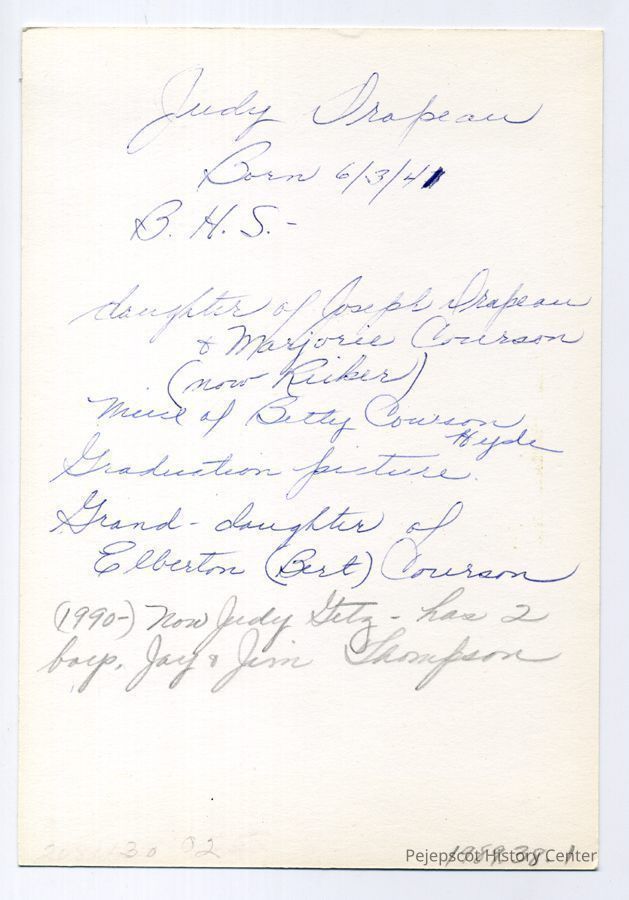 Judy Drapeau
Born 6/3/41
B. H. S. -
daughter of Joseph Drapeau
& Marjorie Courson
(now Ricker)
Niece of Betty Courson
Hyde
Graduation picture.
Grand-daughter of
Elberton (Bert) Courson
(1990-) Now Judy Getz - has 2
boys. Jay & Jim Thompson
30 92
Pejepscot History Center